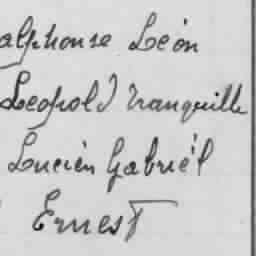 alphonse Léon
Léopold Tranquille
Lucien Gabriël
Ernest